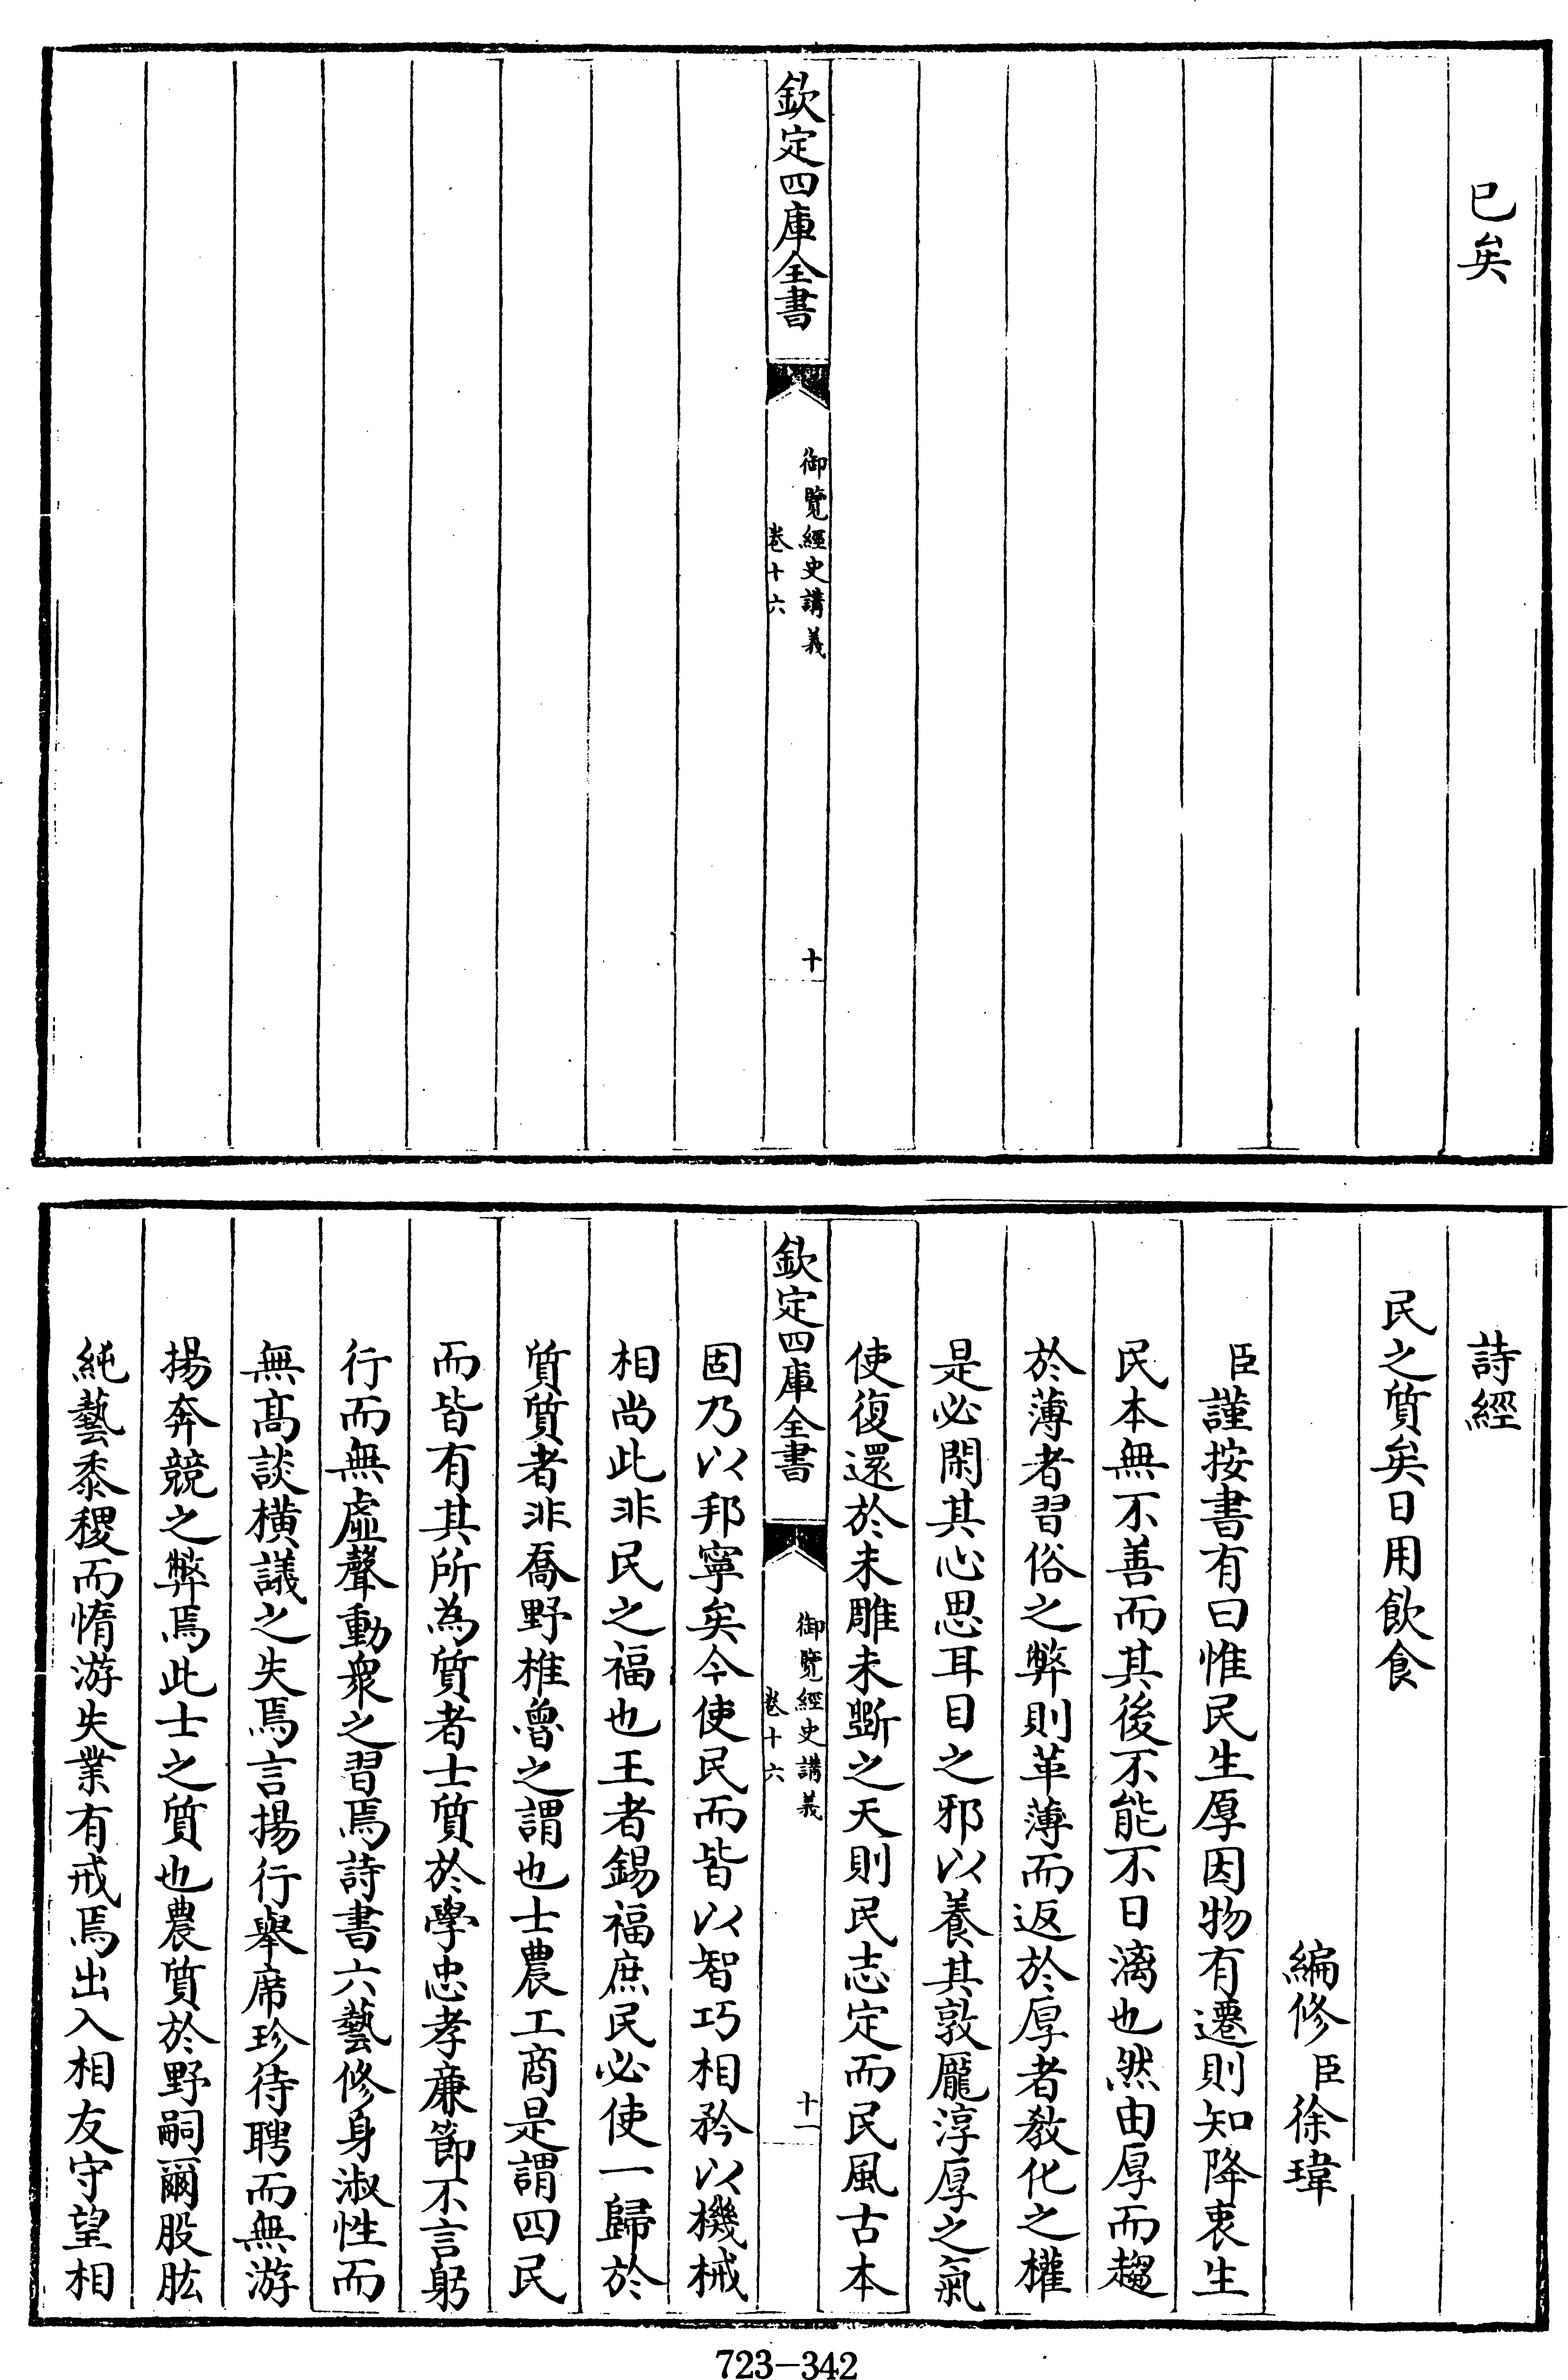 已矣
欽定四庫全書
御覽經史講義
卷十六
十
詩經
民之質矣日用飲食
編修臣徐瑋
臣謹按書有曰惟民生厚因物有遷則知降衷生
民本無不善而其後不能不日漓也然由厚而趨
於薄者習俗之弊則革薄而返於厚者教化之權
是必閑其心思耳目之邪以養其敦龎淳厚之氣
使復還於未雕未斵之天則民志定而民風古本
欽定四庫全書
御覽經史講義
卷十六
十一
固乃以邦寧矣今使民而皆以智巧相矜以機械
相尚此非民之福也王者錫福庶民必使一歸於
質質者非喬野椎魯之謂也士農工商是謂四民
而皆有其所為質者士質於學忠孝廉節不言躬
行而無虛聲動衆之習焉詩書六藝修身淑性而
無髙談橫議之失焉言揚行舉席珍待聘而無游
揚奔競之弊焉此士之質也農質於野嗣爾股肱
純藝黍稷而惰游失業有戒焉出入相友守望相
723-342